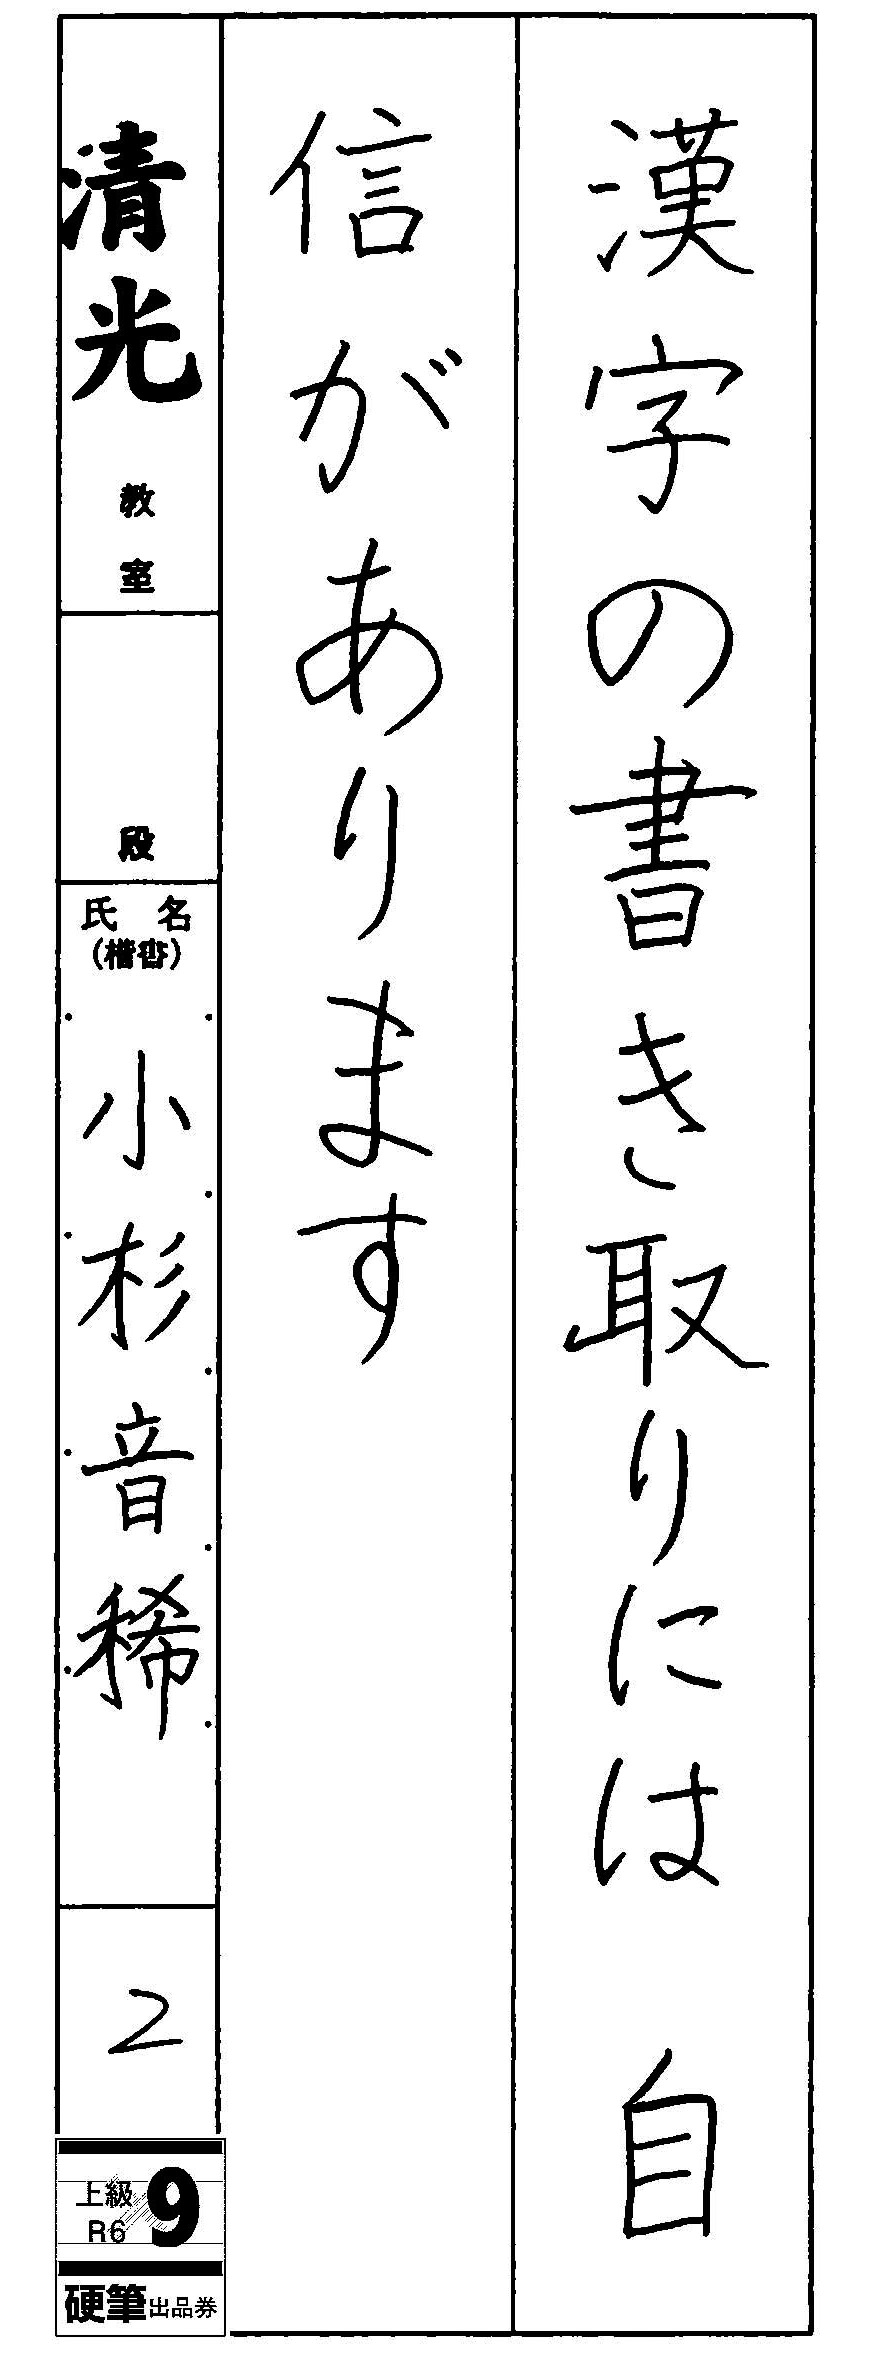 漢字の書き取りには 自
信があります
清光
教室
段
氏名
(楷書)
小杉音稀
2
上級
R6
9
硬筆出品券